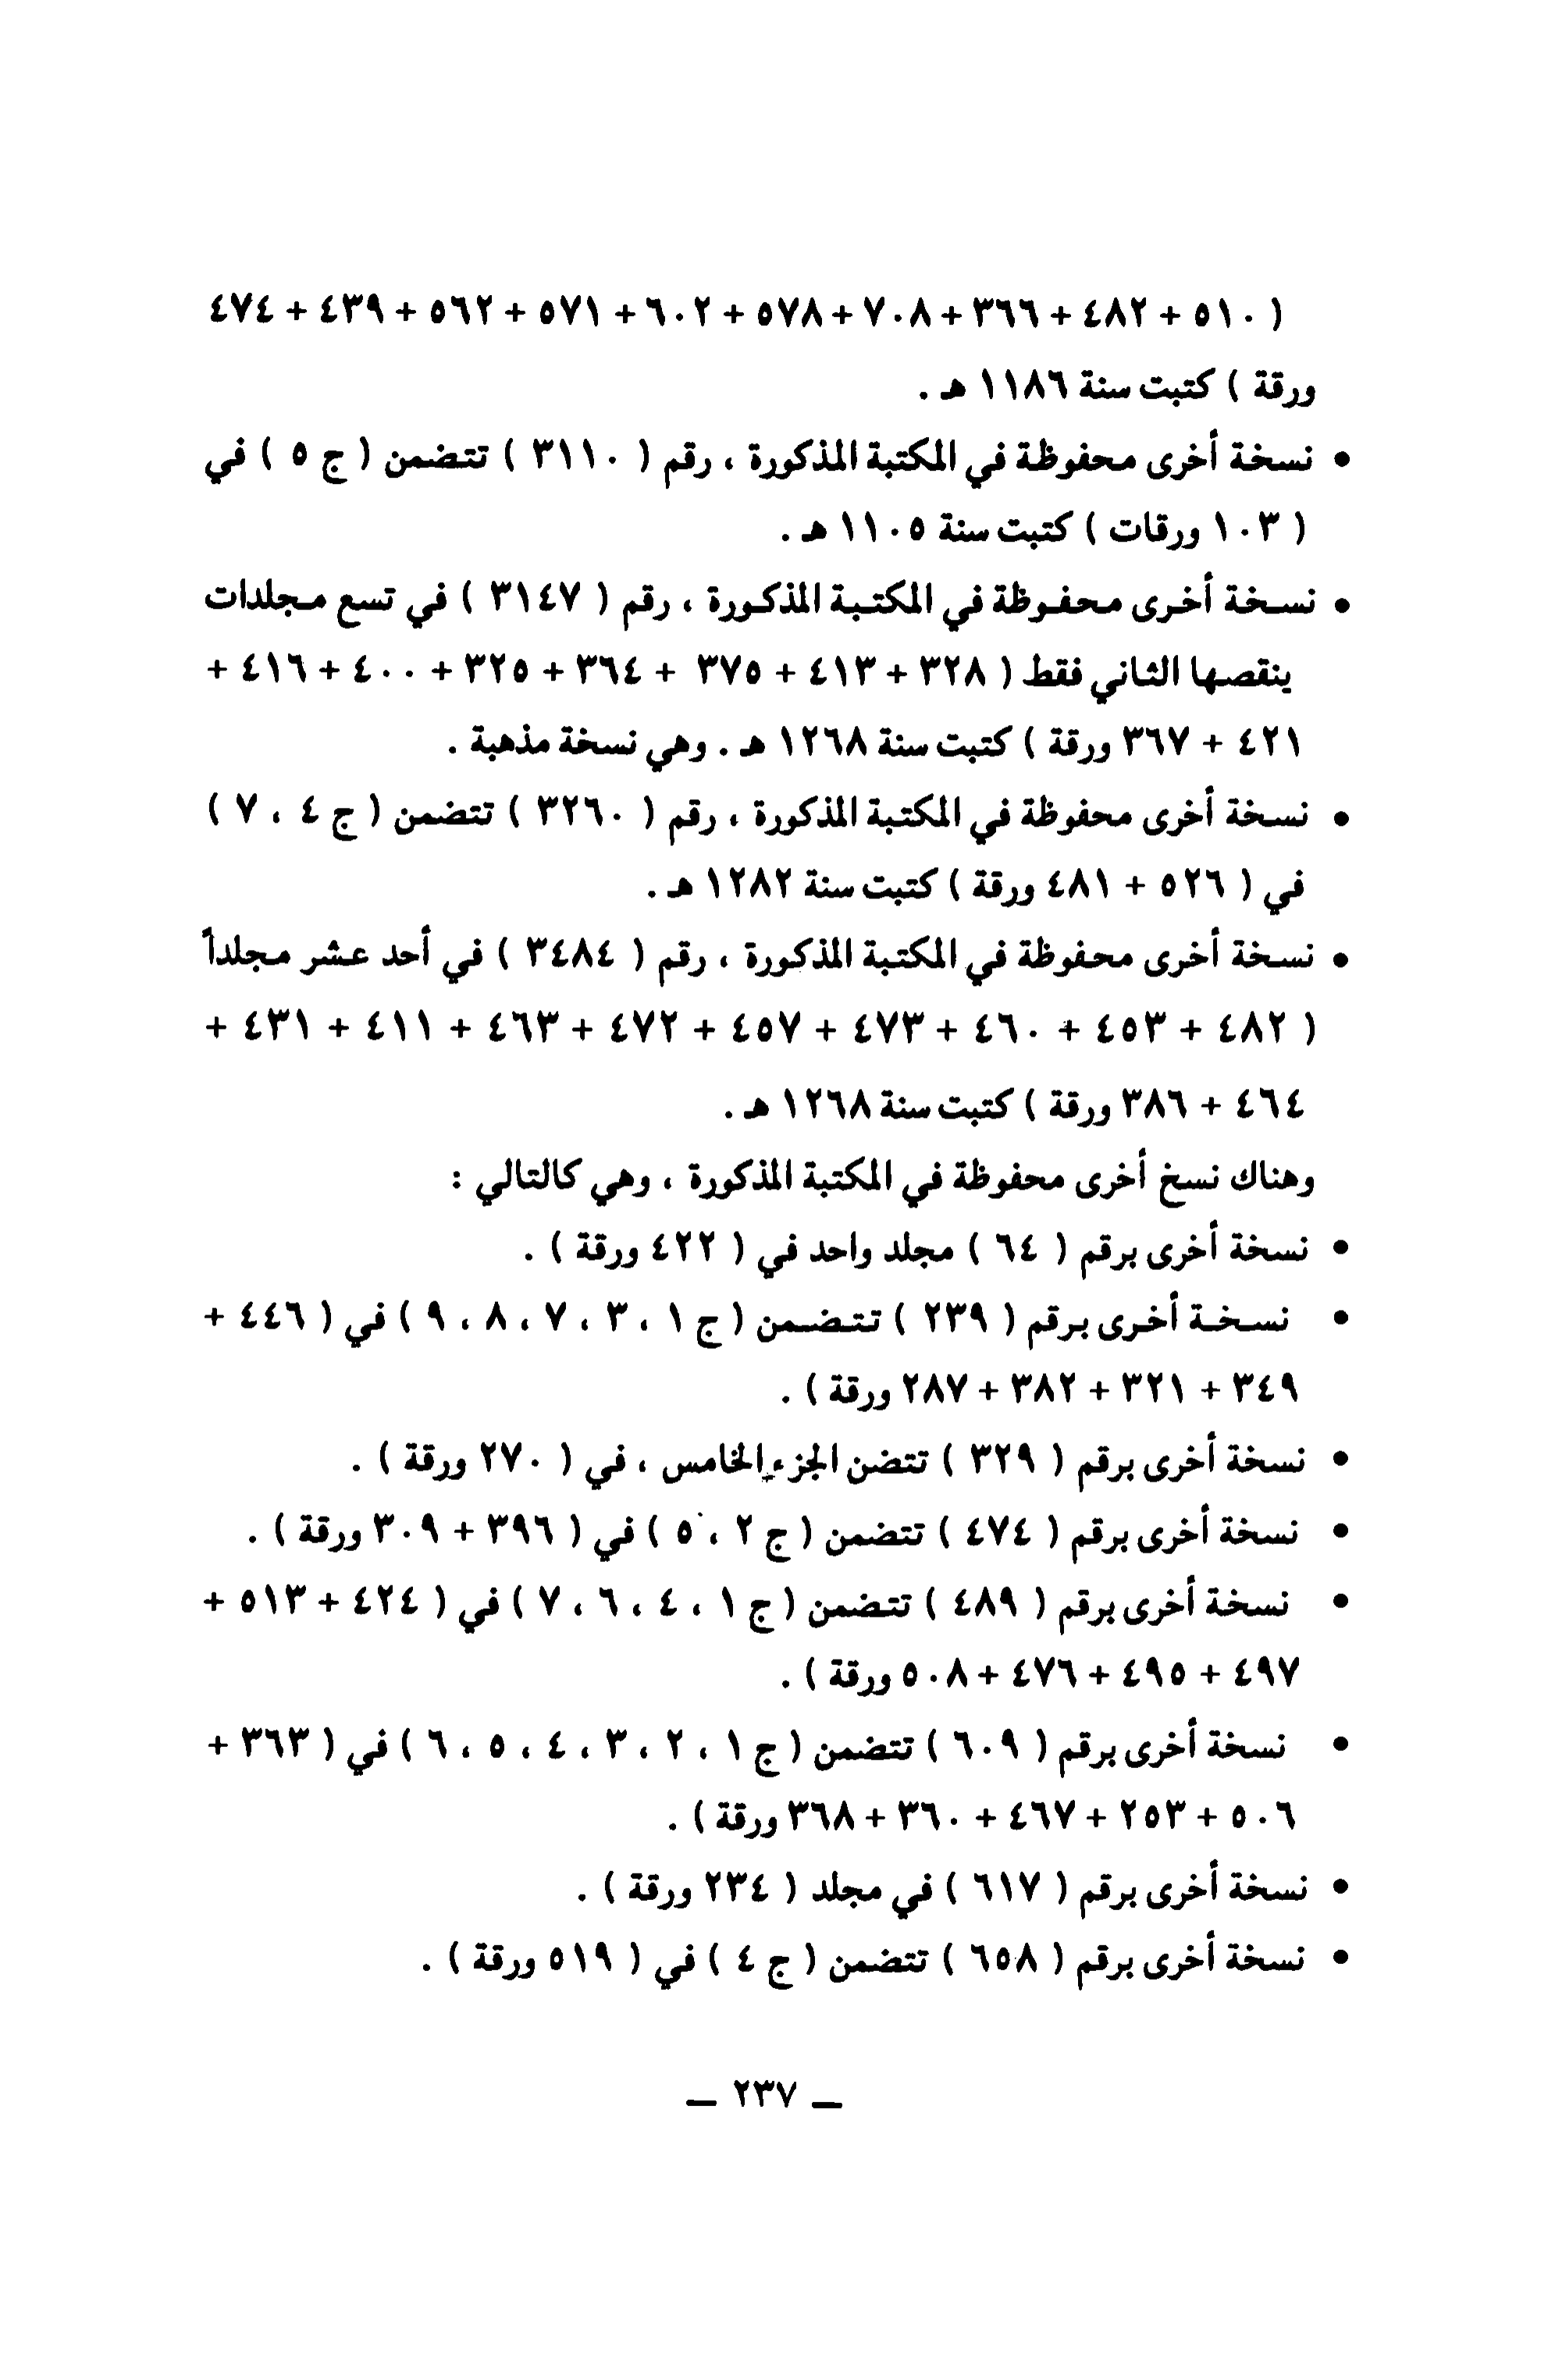 ( ٥١٠ + ٤٨٢ + ٣٦٦ + ٧٠٨ + ٥٧٨ + ٦٠٢ + ٥٧١ + ٥٦٢ + ٤٣٩ + ٤٧٤
ورقة ) كتبت سنة ١١٨٦ هـ .
• نسخة أخرى محفوظة في المكتبة المذكورة ، رقم ( ٣١١٠ ) تتضمن ( ج ٥ ) في
( ١٠٣ ورقات ) كتبت سنة ١١٠٥ هـ .
• نسخة أخرى محفوظة في المكتبة المذكورة ، رقم ( ٣١٤٧ ) في تسع مجلدات
ينقصها الثاني فقط ( ٣٢٨ + ٤١٣ + ٣٧٥ + ٣٦٤ + ٣٢٥ + ٤٠٠ + ٤١٦ +
٤٢١ + ٣٦٧ ورقة ) كتبت سنة ١٢٦٨ هـ . وهي نسخة مذهبة .
• نسخة أخرى محفوظة في المكتبة المذكورة ، رقم ( ٣٢٦٠ ) تتضمن ( ج ٤ ، ٧ )
في ( ٥٢٦ + ٤٨١ ورقة ) كتبت سنة ١٢٨٢ هـ .
• نسخة أخرى محفوظة في المكتبة المذكورة ، رقم ( ٣٤٨٤ ) في أحد عشر مجلداً
( ٤٨٢ + ٤٥٣ + ٤٦٠ + ٤٧٣ + ٤٥٧ + ٤٧٢ + ٤٦٣ + ٤١١ + ٤٣١ +
٤٦٤ + ٣٨٦ ورقة ) كتبت سنة ١٢٦٨ هـ .
وهناك نسخ أخرى محفوظة في المكتبة المذكورة ، وهي كالتالي :
• نسخة أخرى برقم ( ٦٤ ) مجلد واحد في ( ٤٢٢ ورقة ) .
• نسخة أخرى برقم ( ٢٣٩ ) تتضمن ( ج ١ ، ٣ ، ٧ ، ٨ ، ٩ ) في ( ٤٤٦ +
٣٤٩ + ٣٢١ + ٣٨٢ + ٢٨٧ ورقة ) .
• نسخة أخرى برقم ( ٣٢٩ ) تتضن الجزء الخامس ، في ( ٢٧٠ ورقة ) .
• نسخة أخرى برقم ( ٤٧٤ ) تتضمن ( ج ٢ ، ٥ ) في ( ٣٩٦ + ٣٠٩ ورقة ) .
• نسخة أخرى برقم ( ٤٨٩ ) تتضمن ( ج ١ ، ٤ ، ٦ ، ٧ ) في ( ٤٢٤ + ٥١٣ +
٤٩٧ + ٤٩٥ + ٤٧٦ + ٥٠٨ ورقة ) .
• نسخة أخرى برقم ( ٦٠٩ ) تتضمن ( ج ١ ، ٢ ، ٣ ، ٤ ، ٥ ، ٦ ) في ( ٣٦٣ +
٥٠٦ + ٢٥٣ + ٤٦٧ + ٣٦٠ + ٣٦٨ ورقة ) .
• نسخة أخرى برقم ( ٦١٧ ) في مجلد ( ٢٣٤ ورقة ) .
• نسخة أخرى برقم ( ٦٥٨ ) تتضمن ( ج ٤ ) في ( ٥١٩ ورقة ) .
ــ ٢٣٧ ــ